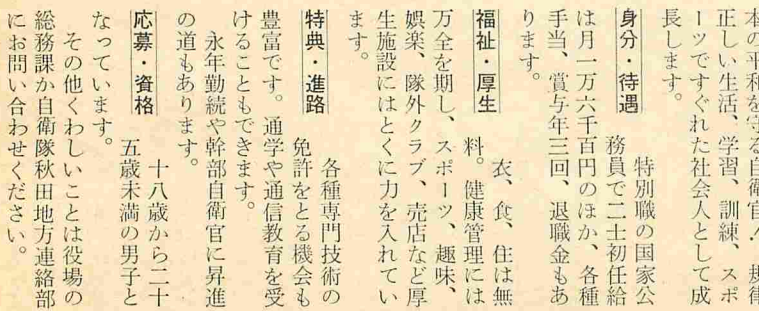 本の平和を守る自衛官！ 規律
正しい生活、学習、訓練、スポ
ーツですぐれた社会人として成
長します。
身分・待遇
特別職の国家公
務員で二士初任給
は月一万六千百円のほか、各種
手当、賞与年三回、退職金もあ
ります。
福祉・厚生
衣、食、住は無
料。健康管理には
万全を期し、スポーツ、趣味、
娯楽、隊外クラブ、売店など厚
生施設にはとくに力を入れてい
ます。
特典・進路
各種専門技術の
免許をとる機会も
豊富です。通学や通信教育を受
けることもできます。
永年勤続や幹部自衛官に昇進
の道もあります。
応募・資格
十八歳から二十
五歳未満の男子と
なっています。
その他くわしいことは役場の
総務課か自衛隊秋田地方連絡部
にお問い合わせください。